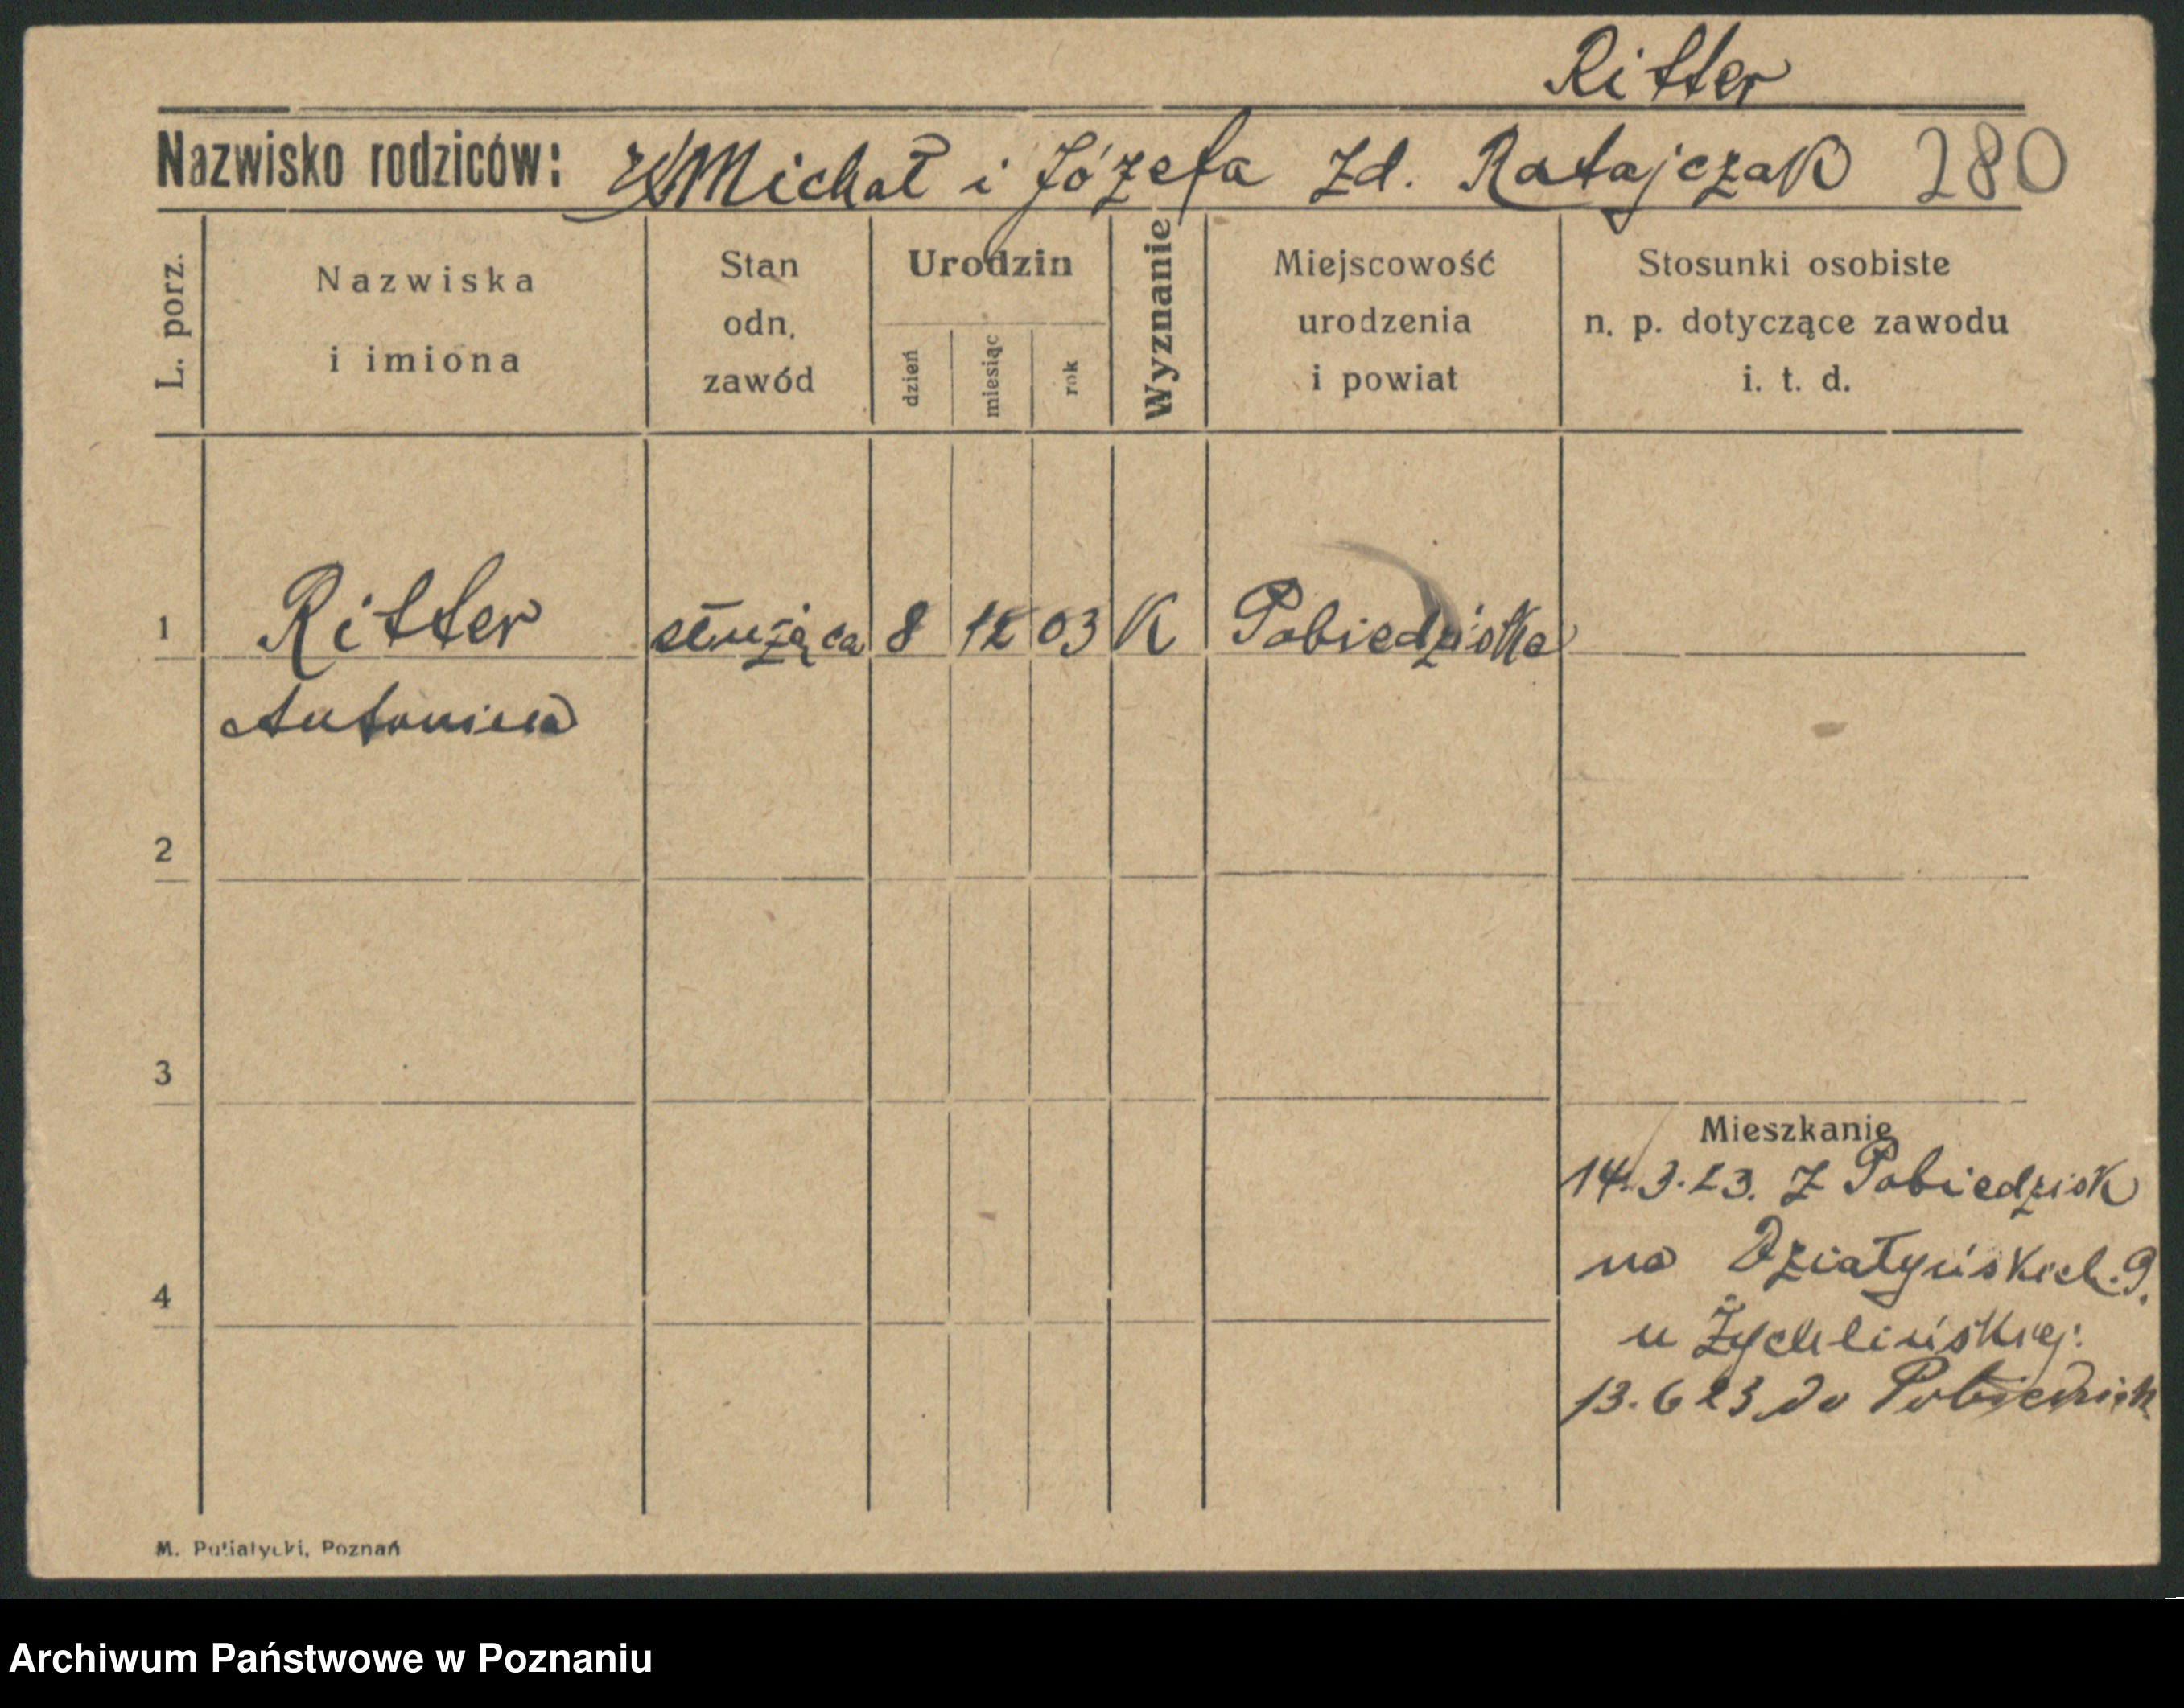 Ritter
Nazwisko rodziców: Michał i Józefa zd. Ratajczak 280
L. porz.
Nazwiska
i imiona
Stan
odn.
zawód
Urodzin
dzień
miesiąc
rok
Wyznanie
Miejscowość
urodzenia
i powiat
Stosunki osobiste
n. p. dotyczące zawodu
i. t. d.
1 Ritter służąca 8 12 03 K Pobiedziska
Antonina
2
3
Mieszkanie
14.3.23. z Pobiedzisk
na Działyńskich 9.
4
u Żychlińskiej.
13.6 23 do Pobiedzisk
M. Putiatycki, Poznań
Archiwum Państwowe w Poznaniu